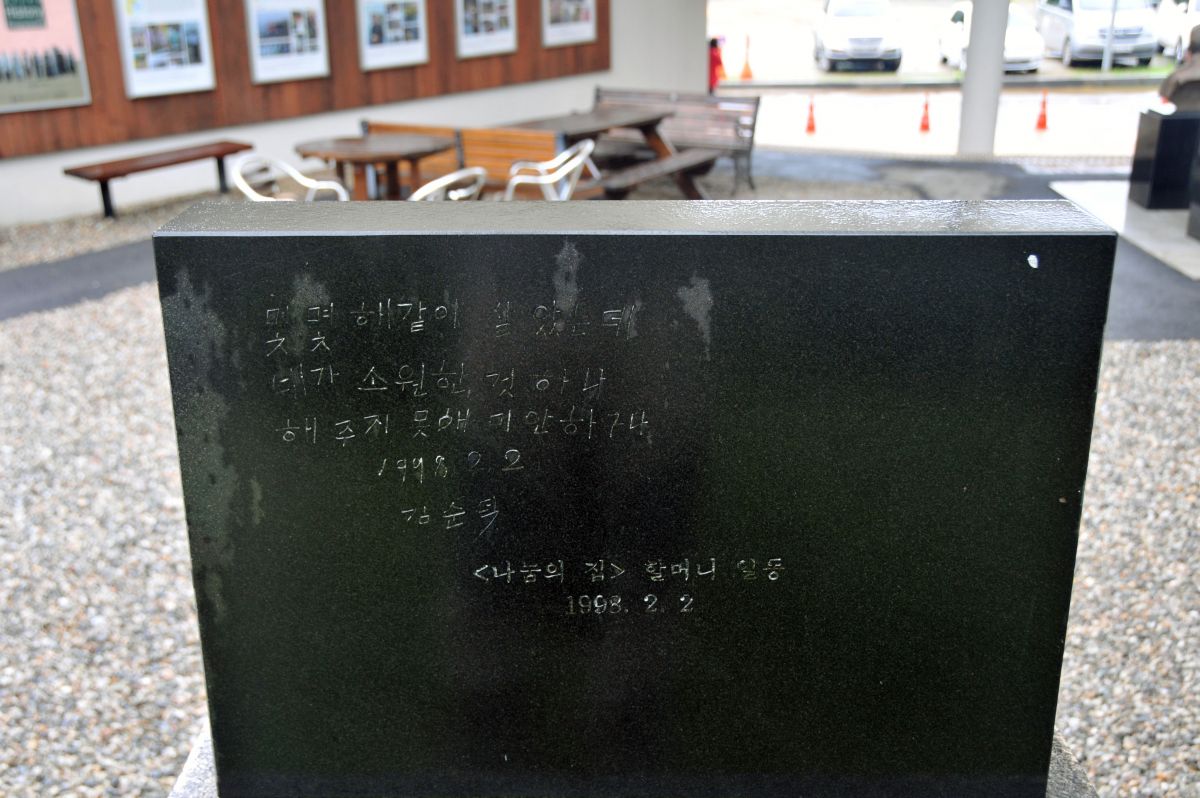 몇몇 해같이 살았는데
네가 소원한 것 하나
해 주지 못해 미안하구나
1998. 2. 2
김순덕
<나눔의 집> 할머니 일동
1998. 2. 2